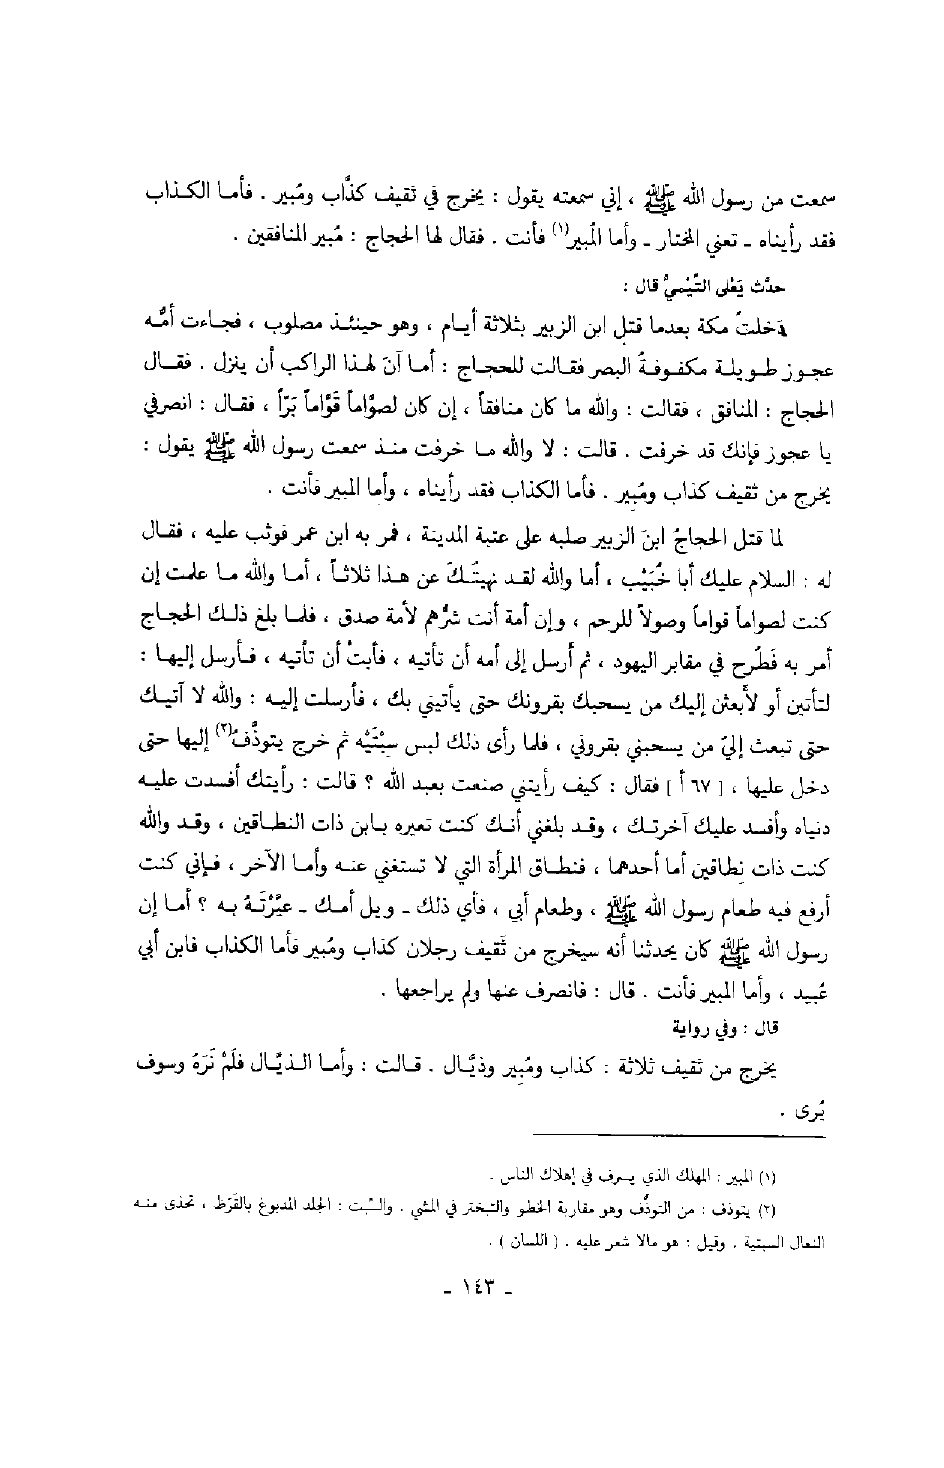 سمعت من رسول الله ﷺ ، إني سمعته يقول : يخرج في ثقيف كذَّاب ومُبير . فأما الكذاب
فقد رأيناه ـ تعني المختار ـ وأما المُبير(١) فأنت . فقال لها الحجاج : مُبير المنافقين .
حدَّث يَعْلى التَّيْميُّ قال :
دَخلتُ مكة بعدما قتل ابن الزبير بثلاثة أيام ، وهو حينئذ مصلوب ، فجاءت أمُّه
عجوز طويلة مكفوفةُ البصر فقالت للحجاج : أما آنَ لهذا الراكب أن ينزل . فقال
الحجاج : المنافق ، فقالت : والله ما كان منافقاً ، إن كان لصوَّاماً قوَّاماً بَرّاً ، فقال : انصرفي
يا عجوز فإنك قد خرفت . قالت : لا والله ما خرفت منذ سمعت رسول الله ﷺ يقول :
يخرج من ثقيف كذاب ومُبير . فأما الكذاب فقد رأيناه ، وأما المبير فأنت .
لما قتل الحجاجُ ابنَ الزبير صلبه على عتبة المدينة ، فمر به ابن عمر فوثب عليه ، فقال
له : السلام عليك أبا خُبَيْب ، أما والله لقد نهيتُكَ عن هذا ثلاثاً ، أما والله ما علمت إن
كنت لصواماً قواماً وصولاً للرحم ، وإن أمة أنت شرُّهم لأمة صدق ، فلما بلغ ذلك الحجاج
أمر به فَطُرح في مقابر اليهود ، ثم أرسل إلى أمه أن تأتيه ، فأبتْ أن تأتيه ، فأرسل إليها :
لتأتين أو لأبعثن إليك من يسحبك بقرونك حتى يأتيني بك ، فأرسلت إليه : والله لا آتيك
حتى تبعث إليّ من يسحبني بقروني ، فلما رأى ذلك لبس سِبْتَيْه ثم خرج يتوذَّف(٢) إليها حتى
دخل عليها ، [ ٦٧ أ ] فقال : كيف رأيتني صنعت بعبد الله ؟ قالت : رأيتك أفسدت عليه
دنياه وأفسد عليك آخرتك ، وقد بلغني أنك كنت تعيره بابن ذات النطاقين ، وقد والله
كنت ذات نِطاقين أما أحدهما ، فنطاق المرأة التي لا تستغني عنه وأما الآخر ، فإني كنت
أرفع فيه طعام رسول الله ﷺ ، وطعام أبي ، فأي ذلك ـ ويل أمك ـ عيَّرْتَهُ به ؟ أما إن
رسول الله ﷺ كان يحدثنا أنه سيخرج من ثَقيف رجلان كذاب ومُبير فأما الكذاب فابن أبي
عُبيد ، وأما المبير فأنت . قال : فانصرف عنها ولم يراجعها .
قال : وفي رواية
يخرج من ثقيف ثلاثة : كذاب ومُبير وذيَّال . قالت : وأما الذيَّال فلَمْ نَرَهُ وسوف
يُرى .
(١) المبير : المهلك الذي يسرف في إهلاك الناس .
(٢) يتوذف : من التوذُّف وهو مقاربة الخطو والتبختر في المشي . والسِّبت : الجلد المدبوغ بالقَرَظ ، تحذى منه
النعال السبتية . وقيل : هو مالا شعر عليه . ( اللسان ) .
ـ ١٤٣ ـ